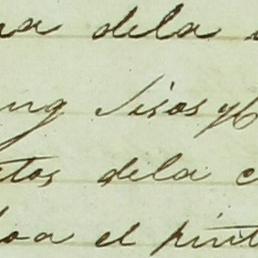 na dela
ung visos y
tos dela c
loa el pint